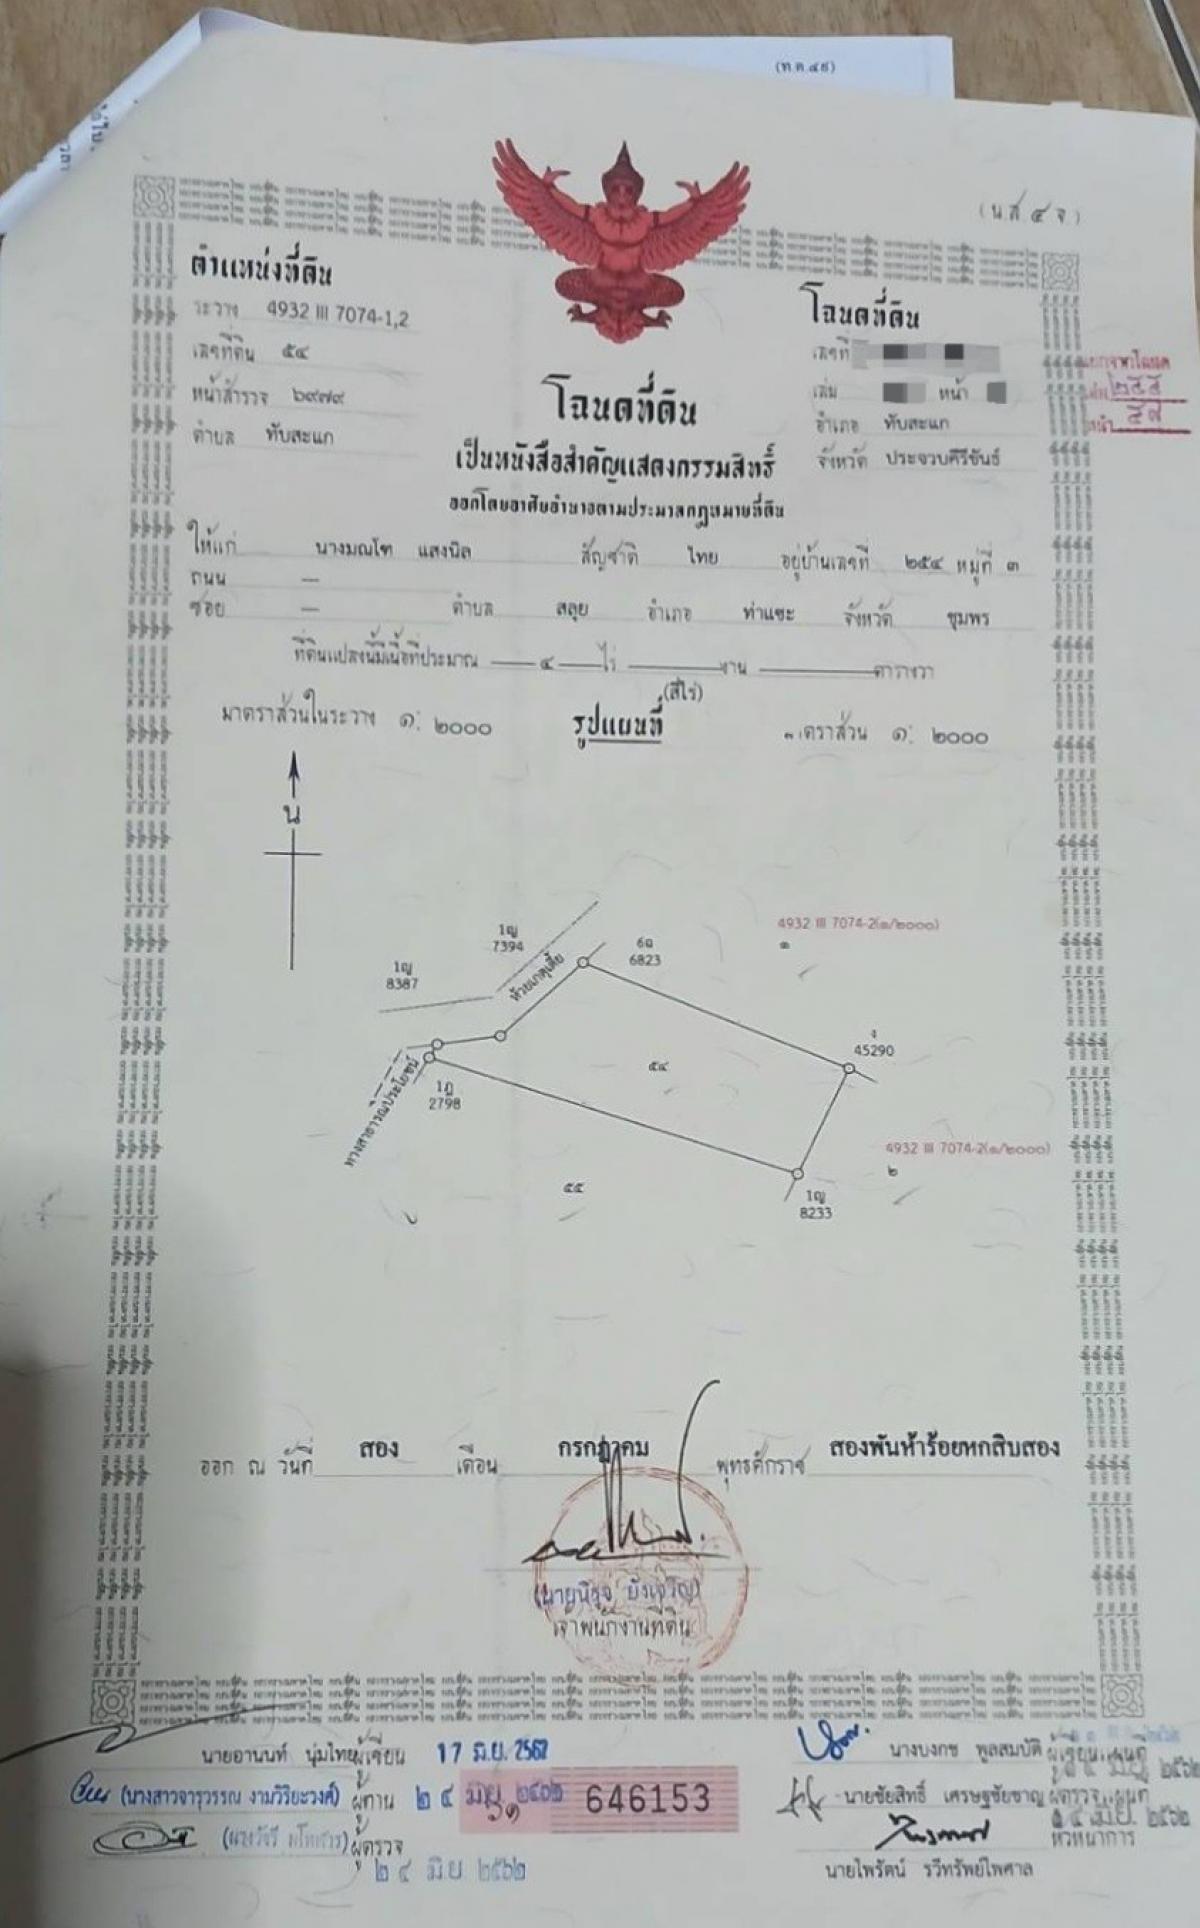 (ท.ด.๔๕)
(น.ส ๔ จ)
ตำแหน่งที่ดิน
ระวาง 4932 III 7074-1,2
เลขที่ดิน ๕๔
หน้าสำรวจ ๖๙๗๙
ตำบล ทับสะแก
โฉนดที่ดิน
เลขที่
เล่ม หน้า
อำเภอ ทับสะแก
จังหวัด ประจวบคีรีขันธ์
แยกจากโฉนด
เล่ม ๒๕๕
หน้า ๕๙
โฉนดที่ดิน
เป็นหนังสือสำคัญแสดงกรรมสิทธิ์
ออกโดยอาศัยอำนาจตามประมวลกฎหมายที่ดิน
ให้แก่ นางมณโฑ แสงนิล สัญชาติ ไทย อยู่บ้านเลขที่ ๒๕๔ หมู่ที่ ๓
ถนน —
ซอย — ตำบล สลุย อำเภอ ท่าแซะ จังหวัด ชุมพร
ที่ดินแปลงนี้มีเนื้อที่ประมาณ — ๔ — ไร่ — งาน — ตารางวา
(สี่ไร่)
มาตราส่วนในระวาง ๑: ๒๐๐๐ รูปแผนที่ มาตราส่วน ๑: ๒๐๐๐
น
4932 III 7074-2(๑/๒๐๐๐)
๑
1ญ
7394
6ฉ
6823
1ญ
8387
ง
45290
๕๔
1ฎ
2798
ทางสาธารณประโยชน์
4932 III 7074-2(๑/๒๐๐๐)
๒
๕๕
1ญ
8233
ออก ณ วันที่ สอง เดือน กรกฎาคม พุทธศักราช สองพันห้าร้อยหกสิบสอง
เจ้าพนักงานที่ดิน
นายอานนท์ นุ่มไทย ผู้เขียน 17 มิ.ย. 2562
(นางสาวจารุวรรณ งามวิริยะวงศ์) ผู้ทาน ๒๔ มิ.ย. ๒๕๖๒
646153
ผู้ตรวจ
๒๔ มิ.ย. ๒๕๖๒
นางบงกช พูลสมบัติ ผู้เขียนแผนที่
นายชัยสิทธิ์ เศรษฐชัยชาญ ผู้ตรวจแผนที่
๒๔ มิ.ย. ๒๕๖๒
นายไพรัตน์ รวีทรัพย์ไพศาล